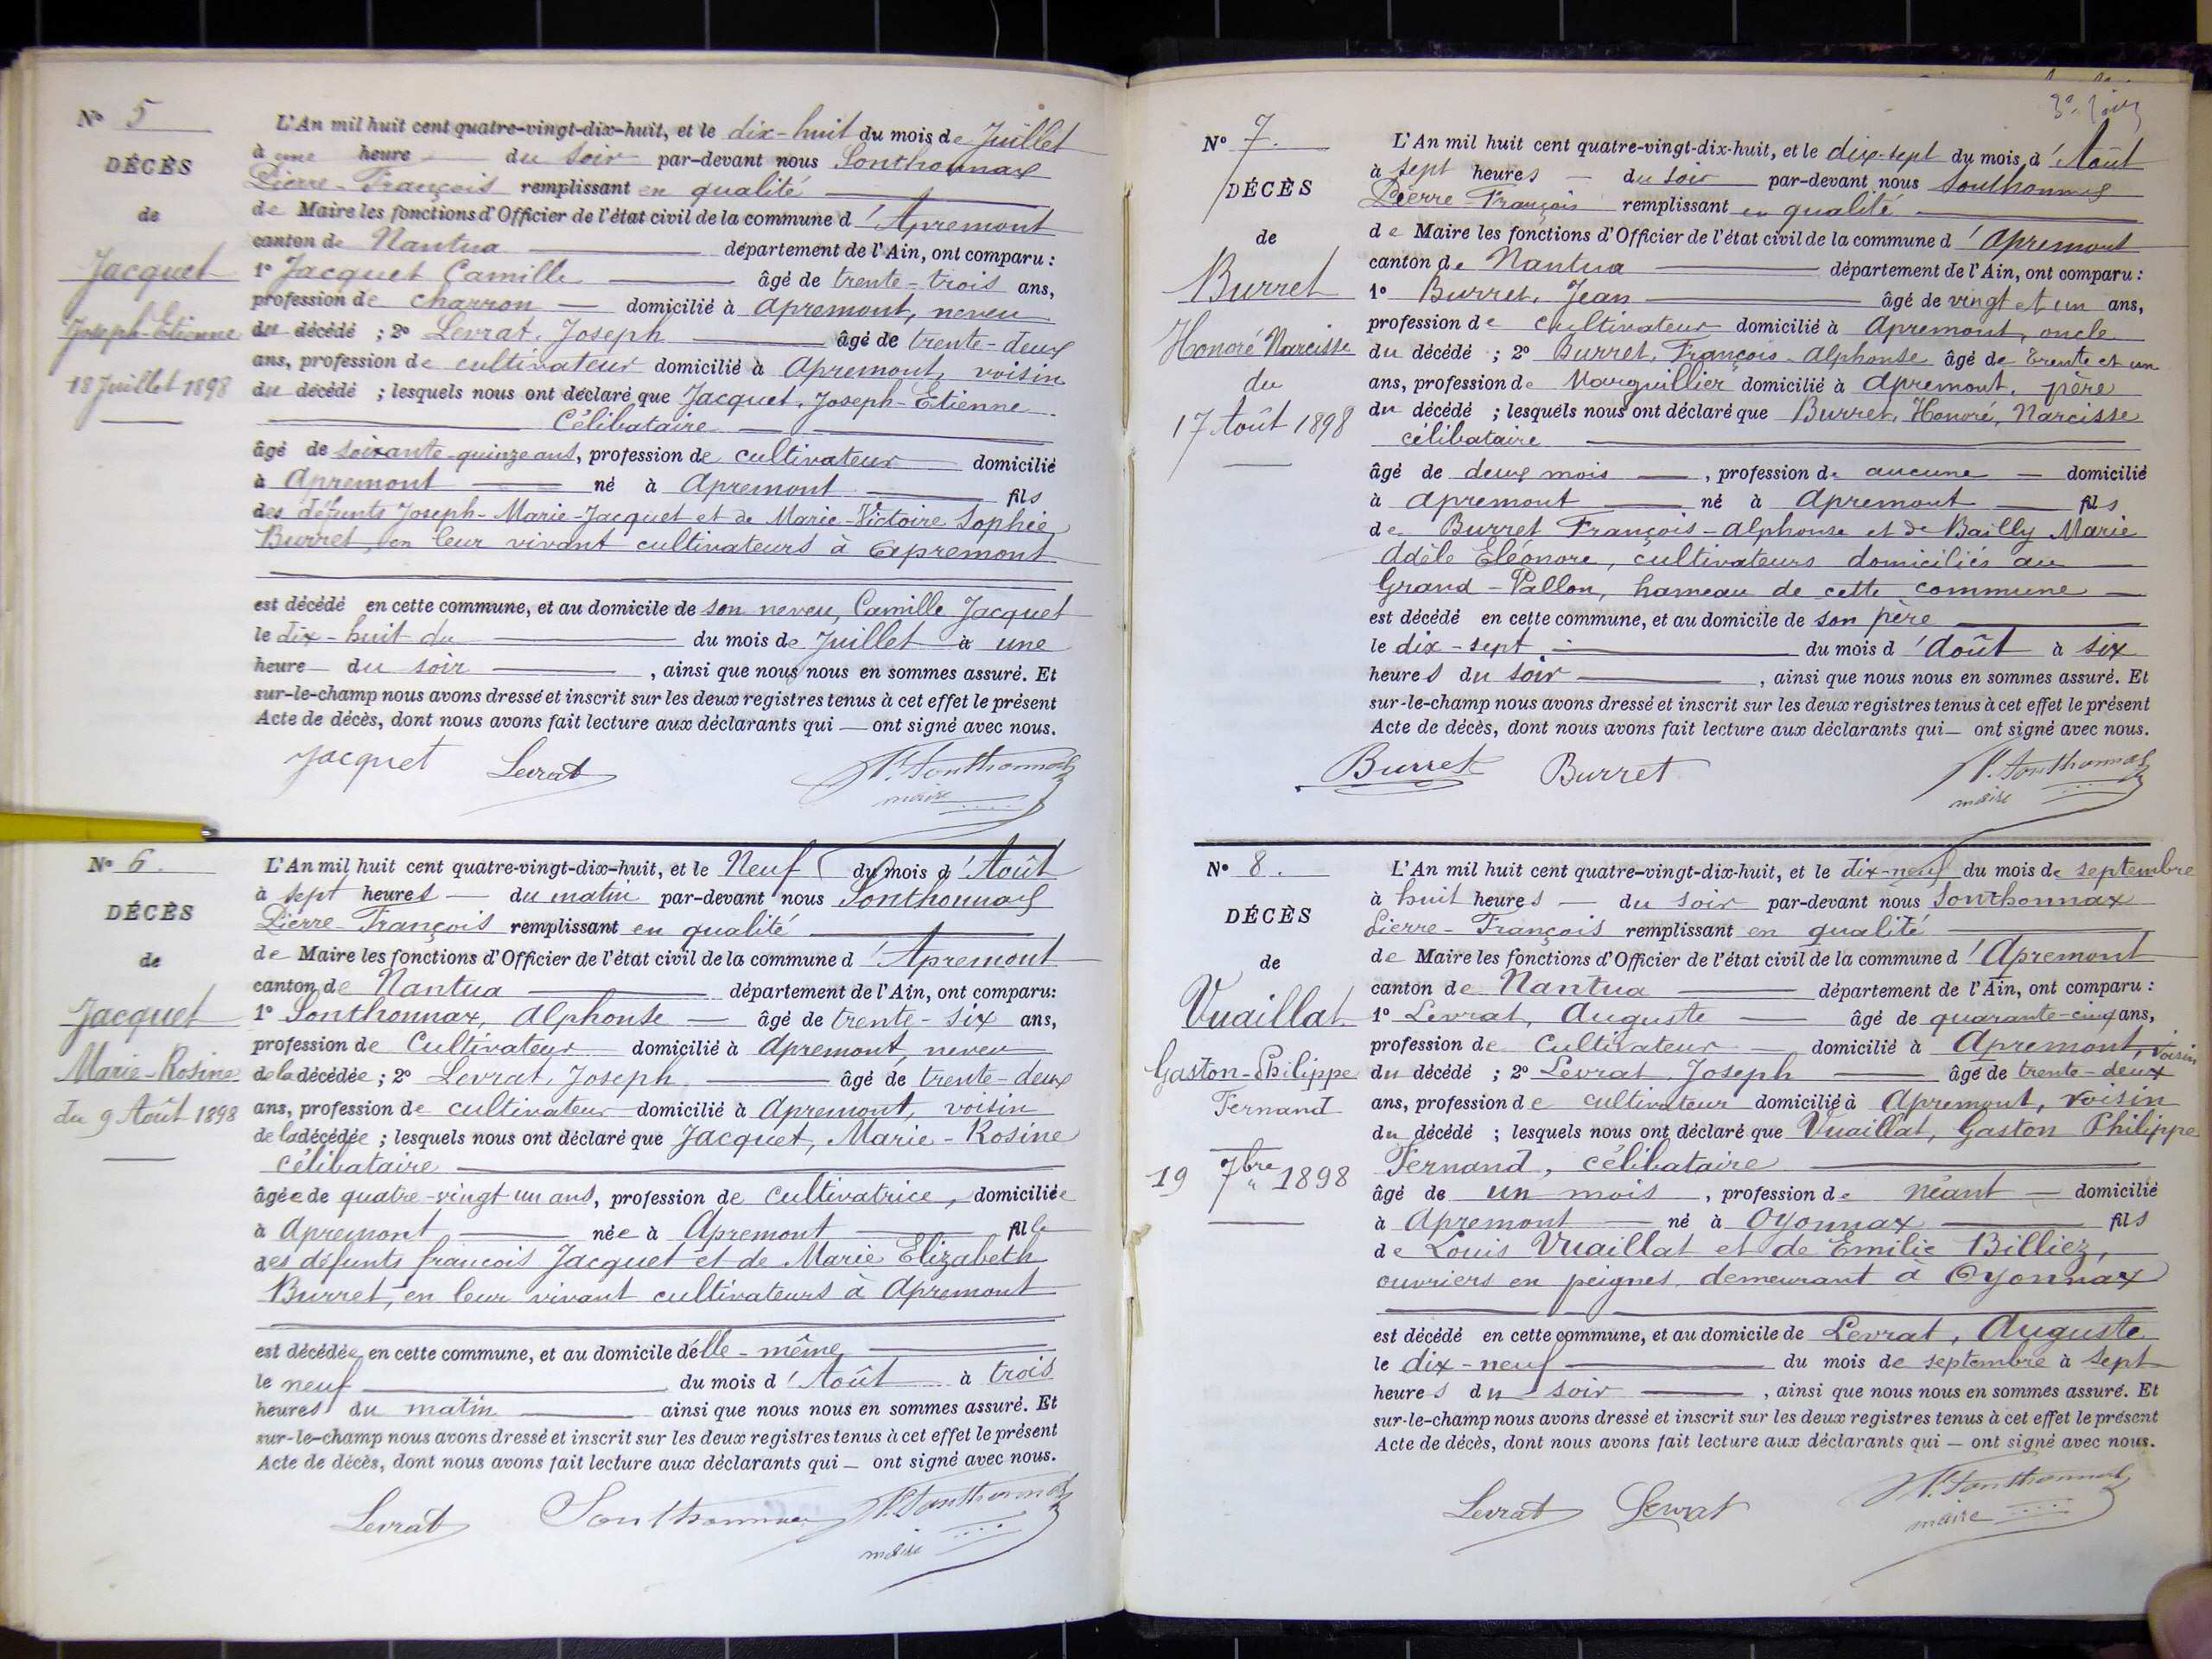 N° 5
DÉCÈS
de
Jacquet
Joseph-Etienne
18 Juillet 1898
L'An mil huit cent quatre-vingt-dix-huit, et le dix-huit du mois de Juillet
à une heure du soir par-devant nous Sonthonnax
Pierre-François remplissant en qualité
de Maire les fonctions d'Officier de l'état civil de la commune d'Apremont
canton de Nantua département de l'Ain, ont comparu :
1° Jacquet Camille âgé de trente-trois ans,
profession de charron domicilié à Apremont, neveu
du décédé ; 2° Levrat, Joseph âgé de trente-deux
ans, profession de cultivateur domicilié à Apremont, voisin
du décédé ; lesquels nous ont déclaré que Jacquet, Joseph-Etienne
Célibataire
âgé de soixante-quinze ans, profession de cultivateur domicilié
à Apremont né à Apremont fils
des défunts Joseph-Marie-Jacquet et de Marie-Victoire Sophie
Burret, en leur vivant cultivateurs à Apremont
est décédé en cette commune, et au domicile de son neveu, Camille Jacquet
le dix-huit du du mois de Juillet à une
heure du soir, ainsi que nous nous en sommes assuré. Et
sur-le-champ nous avons dressé et inscrit sur les deux registres tenus à cet effet le présent
Acte de décès, dont nous avons fait lecture aux déclarants qui — ont signé avec nous.
Jacquet Levrat P. Sonthonnax
maire
N° 6.
DÉCÈS
de
Jacquet
Marie-Rosine
du 9 Août 1898
L'An mil huit cent quatre-vingt-dix-huit, et le Neuf du mois d'Août
à sept heures du matin par-devant nous Sonthonnax
Pierre-François remplissant en qualité
de Maire les fonctions d'Officier de l'état civil de la commune d'Apremont
canton de Nantua département de l'Ain, ont comparu:
1° Sonthonnax, Alphonse âgé de trente-six ans,
profession de Cultivateur domicilié à Apremont, neveu
de la décédée ; 2° Levrat, Joseph âgé de trente-deux
ans, profession de cultivateur domicilié à Apremont, voisin
de la décédée ; lesquels nous ont déclaré que Jacquet, Marie-Rosine
célibataire
âgée de quatre-vingt un ans, profession de Cultivatrice, domiciliée
à Apremont née à Apremont fille
des défunts francois Jacquet et de Marie Elizabeth
Burret, en leur vivant cultivateurs à Apremont
est décédée en cette commune, et au domicile d'elle-même
le neuf du mois d'Août à trois
heures du matin ainsi que nous nous en sommes assuré. Et
sur-le-champ nous avons dressé et inscrit sur les deux registres tenus à cet effet le présent
Acte de décès, dont nous avons fait lecture aux déclarants qui — ont signé avec nous.
Levrat Sonthonnax P. Sonthonnax
maire
N° 7.
DÉCÈS
de
Burret
Honoré Narcisse
du
17 Août 1898
L'An mil huit cent quatre-vingt-dix-huit, et le dix-sept du mois d'Août
à sept heures du soir par-devant nous Sonthonnax
Pierre-François remplissant en qualité
de Maire les fonctions d'Officier de l'état civil de la commune d'Apremont
canton de Nantua département de l'Ain, ont comparu :
1° Burret, Jean âgé de vingt et un ans,
profession de cultivateur domicilié à Apremont, oncle
du décédé ; 2° Burret, François-Alphonse âgé de trente et un
ans, profession de Marguillier domicilié à Apremont, père
du décédé ; lesquels nous ont déclaré que Burret, Honoré, Narcisse
célibataire
âgé de deux mois, profession de aucune domicilié
à Apremont né à Apremont fils
de Burret François-Alphonse et de Bailly Marie
Adèle Eléonore, cultivateurs domiciliés au
Grand-Vallon, hameau de cette commune
est décédé en cette commune, et au domicile de son père
le dix-sept du mois d'Août à six
heures du soir, ainsi que nous nous en sommes assuré. Et
sur-le-champ nous avons dressé et inscrit sur les deux registres tenus à cet effet le présent
Acte de décès, dont nous avons fait lecture aux déclarants qui — ont signé avec nous.
Burret Burret P. Sonthonnax
maire
N° 8.
DÉCÈS
de
Vuaillat
Gaston-Philippe
Fernand
19 7bre 1898
L'An mil huit cent quatre-vingt-dix-huit, et le dix-neuf du mois de septembre
à huit heures du soir par-devant nous Sonthonnax
Pierre-François remplissant en qualité
de Maire les fonctions d'Officier de l'état civil de la commune d'Apremont
canton de Nantua département de l'Ain, ont comparu :
1° Levrat, Auguste âgé de quarante-cinq ans,
profession de Cultivateur domicilié à Apremont, voisin
du décédé ; 2° Levrat, Joseph âgé de trente-deux
ans, profession de cultivateur domicilié à Apremont, voisin
du décédé ; lesquels nous ont déclaré que Vuaillat, Gaston Philippe
Fernand, célibataire
âgé de un mois, profession de néant domicilié
à Apremont né à Oyonnax fils
de Louis Vuaillat et de Emilie Billiez,
ouvriers en peignes, demeurant à Oyonnax
est décédé en cette commune, et au domicile de Levrat, Auguste
le dix-neuf du mois de septembre à sept
heures du soir, ainsi que nous nous en sommes assuré. Et
sur-le-champ nous avons dressé et inscrit sur les deux registres tenus à cet effet le présent
Acte de décès, dont nous avons fait lecture aux déclarants qui — ont signé avec nous.
Levrat Levrat P. Sonthonnax
maire